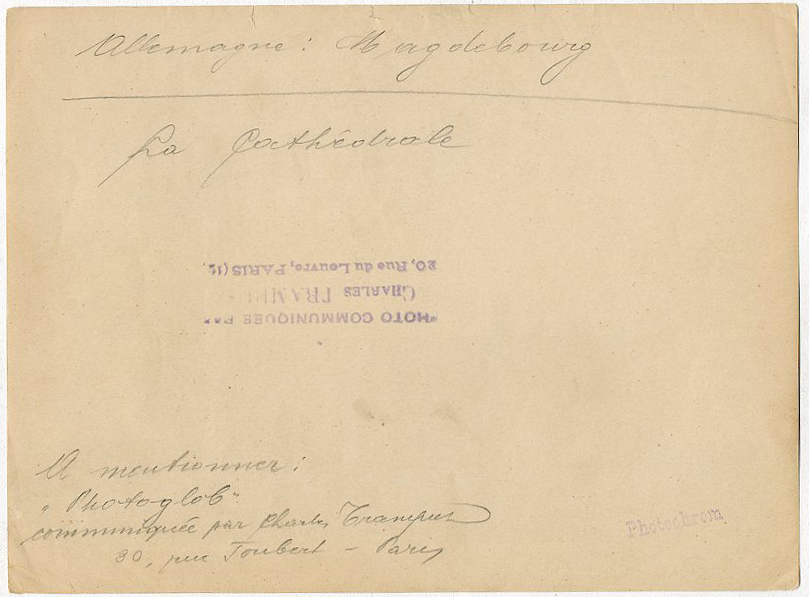 Allemagne : Magdebourg
La Cathédrale
PHOTO COMMUNIQUÉE PAR
CHARLES TRAMPUS
20, Rue du Louvre, PARIS (1e
A mentionner :
"Photoglob"
communiquée par Charles Trampus
30, rue Joubert – Paris
Photochrom